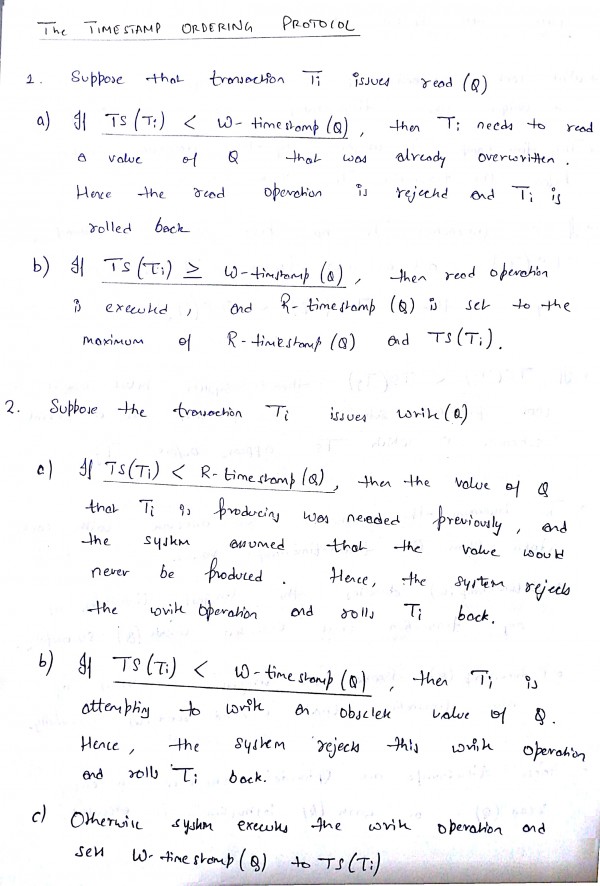 The TIMESTAMP ORDERING PROTOCOL
1. Suppose that transaction Ti issues read (Q)
a) If TS (Ti) < W- timestamp (Q) , then Ti needs to read
a value of Q that was already overwritten .
Hence the read operation is rejected and Ti is
rolled back
b) If TS (Ti) ≥ W-timstamp (Q) , then read operation
is executed , and R- timestamp (Q) is set to the
maximum of R-timestamp (Q) and TS(Ti) .
2. Suppose the transaction Ti issues write (Q)
a) If TS(Ti) < R-timestamp (Q) , then the value of Q
that Ti is producing was needed previously , and
the system assumed that the value would
never be produced . Hence, the system rejects
the write operation and rolls Ti back.
b) If TS (Ti) < W-timestamp (Q) , then Ti is
attempting to write an obsolete value of Q.
Hence , the system rejects this write operation
and rolls Ti back.
c) Otherwise system executes the write operation and
sets W-timestamp (Q) to TS(Ti)